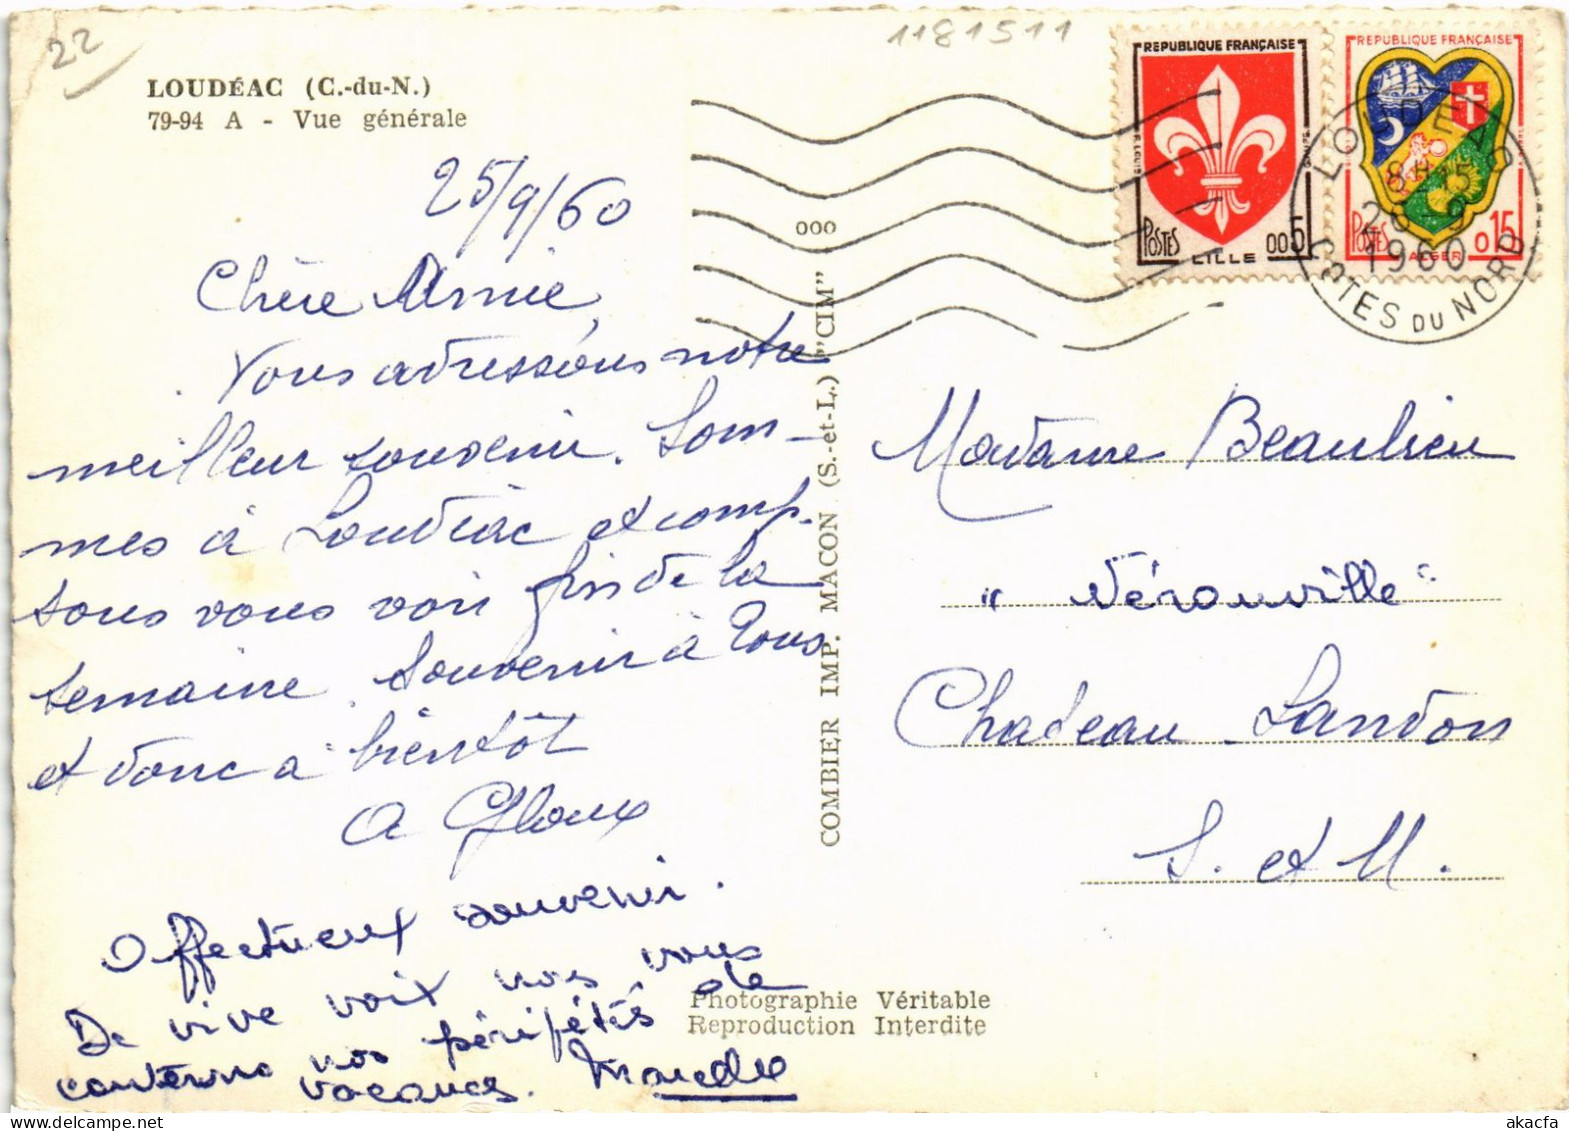 22
1181511
LOUDÉAC (C.-du-N.)
79-94 A - Vue générale
25/9/60
Chère Amie,
Vous adressons notre
meilleur souvenir. Som-
mes à Loudéac et comp-
tons vous voir fin de la
semaine. Souvenir à tous
et donc à bientôt
Affectueux souvenir.
De vive voix nous vous
conterons nos péripétis de
vacances.
COMBIER IMP. MACON (S.-et-L.) "CIM"
Photographie Véritable
Reproduction Interdite
REPUBLIQUE FRANÇAISE
POSTES 005
LILLE
REPUBLIQUE FRANÇAISE
POSTES 015
ALGER
000
LOUDEAC
8H15
26-9
1960
COTES DU NORD
Madame Beaulieu
"Vérouville"
Chateau Landon
S. et M.
akacfa
www.delcampe.net